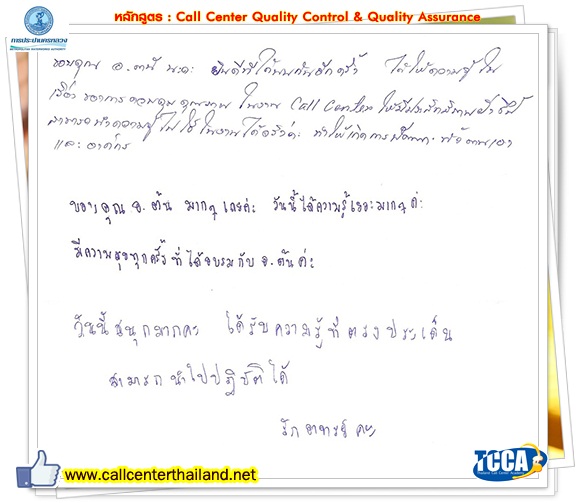 หลักสูตร : Call Center Quality Control & Quality Assurance
การประปานครหลวง
ขอบคุณ อ. นะคะ ยินดีที่ได้พบกันอีกครั้ง ได้ให้ความรู้ ใน
เรื่อง ของการ ควบคุม คุณภาพ ในงาน Call Center ให้มีประสิทธิภาพ
สามารถนำความรู้ ไปใช้ ในงานได้จริงค่ะ ทำให้เกิดการพัฒนา ตนเอง
และ องค์กร
ขอบคุณ อ. ต้น มากๆ เลยค่ะ วันนี้ได้ความรู้เยอะมากๆ ค่ะ
มีความสุขทุกครั้ง ที่ได้อบรมกับ อ. ต้นค่ะ
วันนี้สนุกมากคะ ได้รับความรู้ที่ตรงประเด็น
สามารถนำไปปฏิบัติได้
รัก อาจารย์ คะ
www.callcenterthailand.net
TCCA